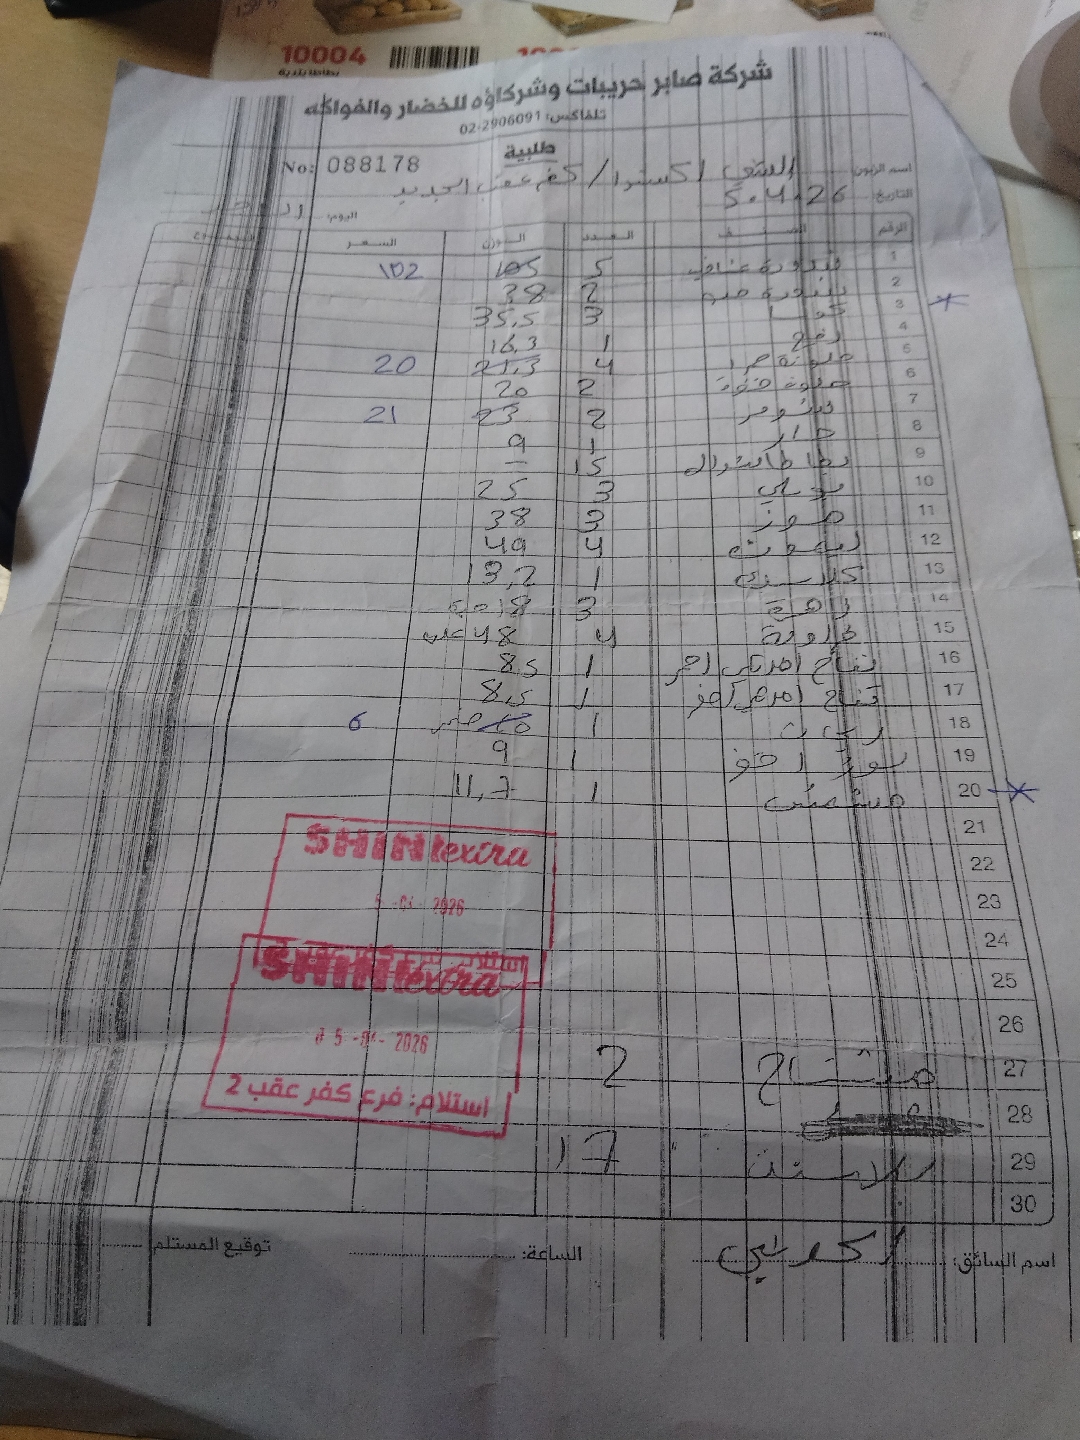 10004
بطاطا بلدية
شركة صابر حريبات وشركاؤه للخضار والفواكه
تلفاكس: 02-2906091
طلبية
No: 088178
اسم الزبون: الشني اكسترا / كفر عقب الجديد
التاريخ: 5.4.26 اليوم:
الرقم الصنف العدد الوزن السعر المجموع
1 بندورة عناقيد 5 105 102
2 بندورة 2 38
3 كوسا 3 35,5
4 1 16,3
5 حمرا 4 21,3 20
6 2 20
7 2 23 21
8 1 9
9 بطاطا 15 –
10 بوملي 3 25
11 موز 3 38
12 ليمون 4 49
13 1 13,2
14 زهرة 3 18
15 فراولة 4 48 علبة
16 تفاح احمر 1 8,5
17 تفاح اصفر 1 8,5
18 1 6
19 1 9
20 مشمش 1 11,7
21
22
23
24
25
26
27 مشتاح 2
28
29 بلاستك 17
30
SHINI extra
5 -04- 2026
SHINI extra
0 5 -04- 2026
استلام: فرع كفر عقب 2
اسم السائق: الساعة: توقيع المستلم: